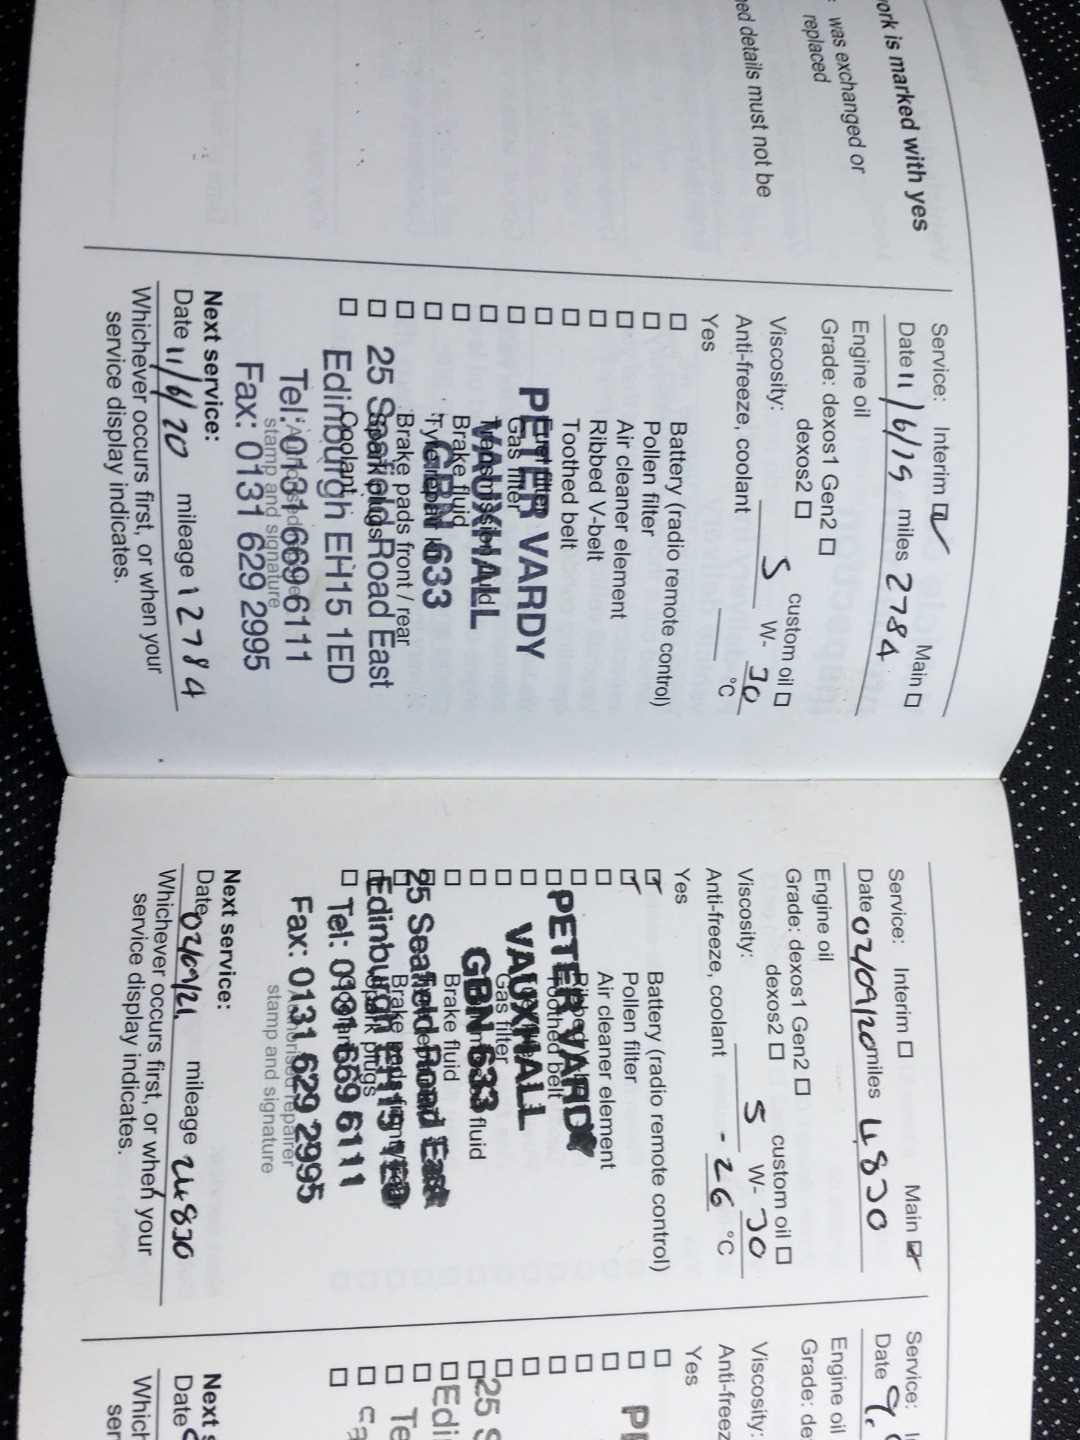 ork is marked with yes
was exchanged or
replaced
ed details must not be
Service: Interim Main
Date 11/6/19 miles 2784
Engine oil
Grade: dexos1 Gen2
dexos2 custom oil
Viscosity: 5 W- 30
Anti-freeze, coolant °C
Yes
Battery (radio remote control)
Pollen filter
Air cleaner element
Ribbed V-belt
Toothed belt
Fuel filter
Gas filter
Transmission fluid
Brake fluid
Tyre repair kit
Brake pads front / rear
Spark plugs
Coolant
PETER VARDY
VAUXHALL
GBN 633
25 Seafield Road East
Edinburgh EH15 1ED
Tel: 0131 669 6111
Fax: 0131 629 2995
stamp and signature
Next service:
Date 11/6/20 mileage 12784
Whichever occurs first, or when your
service display indicates.
Service: Interim Main
Date 02/09/20 miles 4830
Engine oil
Grade: dexos1 Gen2
dexos2 custom oil
Viscosity: 5 W- 30
Anti-freeze, coolant -26 °C
Yes
Battery (radio remote control)
Pollen filter
Air cleaner element
Ribbed V-belt
Toothed belt
Gas filter
fluid
Brake fluid
Brake pads front / rear
Spark plugs
PETER VARDY
VAUXHALL
GBN 633
25 Seafield Road East
Edinburgh EH15 1ED
Tel: 0131 669 6111
Fax: 0131 629 2995
Authorised repairer
stamp and signature
Next service:
Date 02/09/21 mileage 24830
Whichever occurs first, or when your
service display indicates.
Service:
Date 9.
Engine oil
Grade: de
Viscosity:
Anti-freez
Yes
P
25 S
Edi
Te
Next s
Date
Which
ser